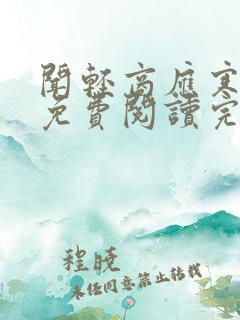 聞輕高應寒
免費閱讀完
程曉
未经同意禁止转载